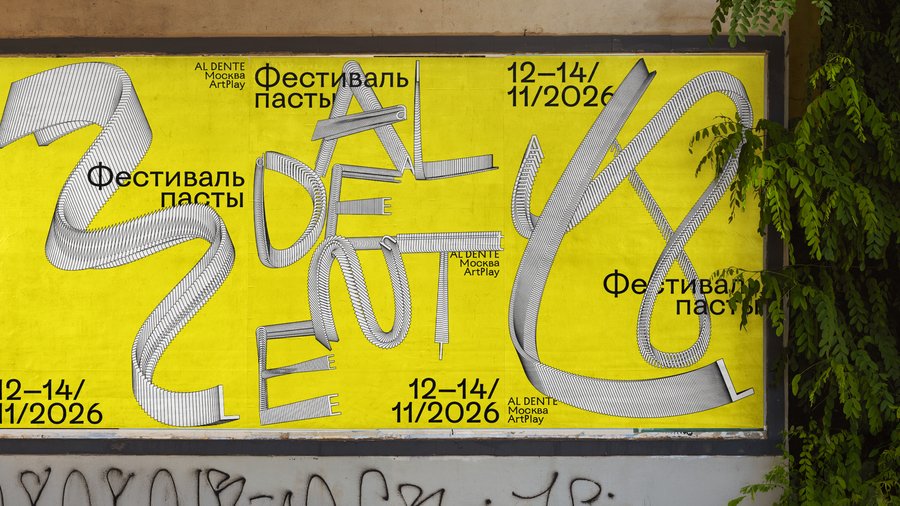 AL DENTE
Москва
ArtPlay
Фестиваль
пасты
Фестиваль
пасты
12–14/
11/2026
AL
DE
NT
E
AL DENTE
Москва
ArtPlay
12–14/
11/2026
12–14/
11/2026
A
L
L
Фестиваль
пасты
AL DENTE
Москва
ArtPlay